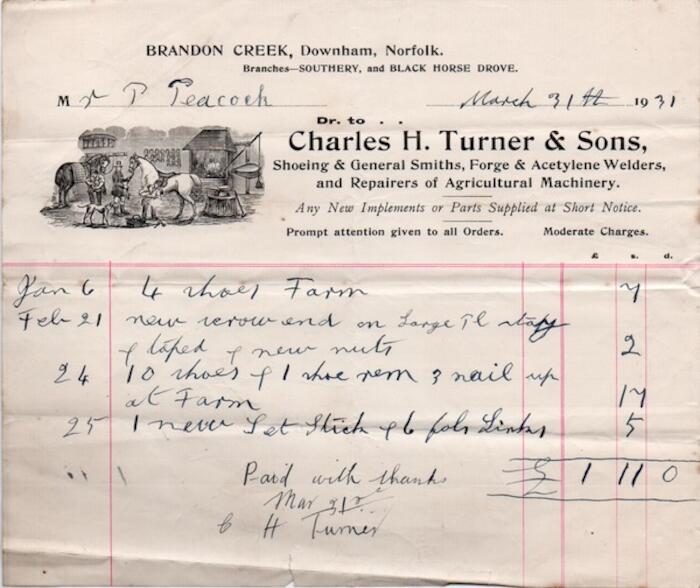 BRANDON CREEK, Downham, Norfolk.
Branches—SOUTHERY, and BLACK HORSE DROVE.
Mr P Peacock March 31st 1931
Dr. to . .
Charles H. Turner & Sons,
Shoeing & General Smiths, Forge & Acetylene Welders,
and Repairers of Agricultural Machinery.
Any New Implements or Parts Supplied at Short Notice.
Prompt attention given to all Orders. Moderate Charges.
£ s. d.
Jan 6 4 shoes Farm 7
Feb 21 new end on Large
& taped & new nuts 2
24 10 shoes & 1 shoe rem 3 nail up
at Farm 17
25 1 new Set Stick & 6 Links 5
Paid with thanks £ 1 11 0
Mar 31st
C H Turner